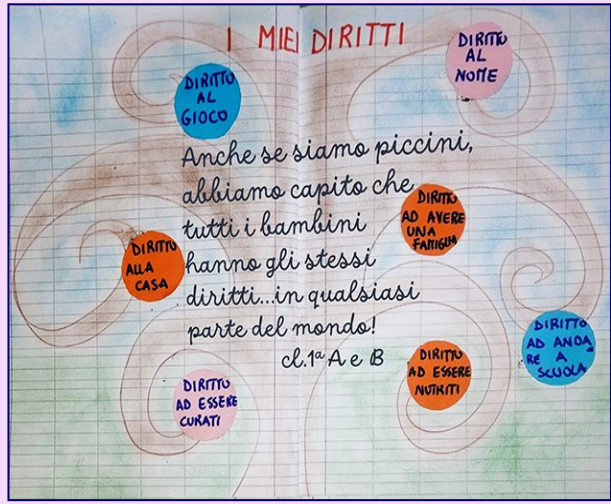 I MIEI DIRITTI
DIRITTO
AL
NOME
DIRITTO
AL
GIOCO
Anche se siamo piccini,
abbiamo capito che
tutti i bambini
hanno gli stessi
diritti...in qualsiasi
parte del mondo!
cl.1ª A e B
DIRITTO
AD AVERE
UNA
FAMIGLIA
DIRITTO
ALLA
CASA
DIRITTO
AD ANDA
RE A
SCUOLA
DIRITTO
AD ESSERE
NUTRITI
DIRITTO
AD ESSERE
CURATI